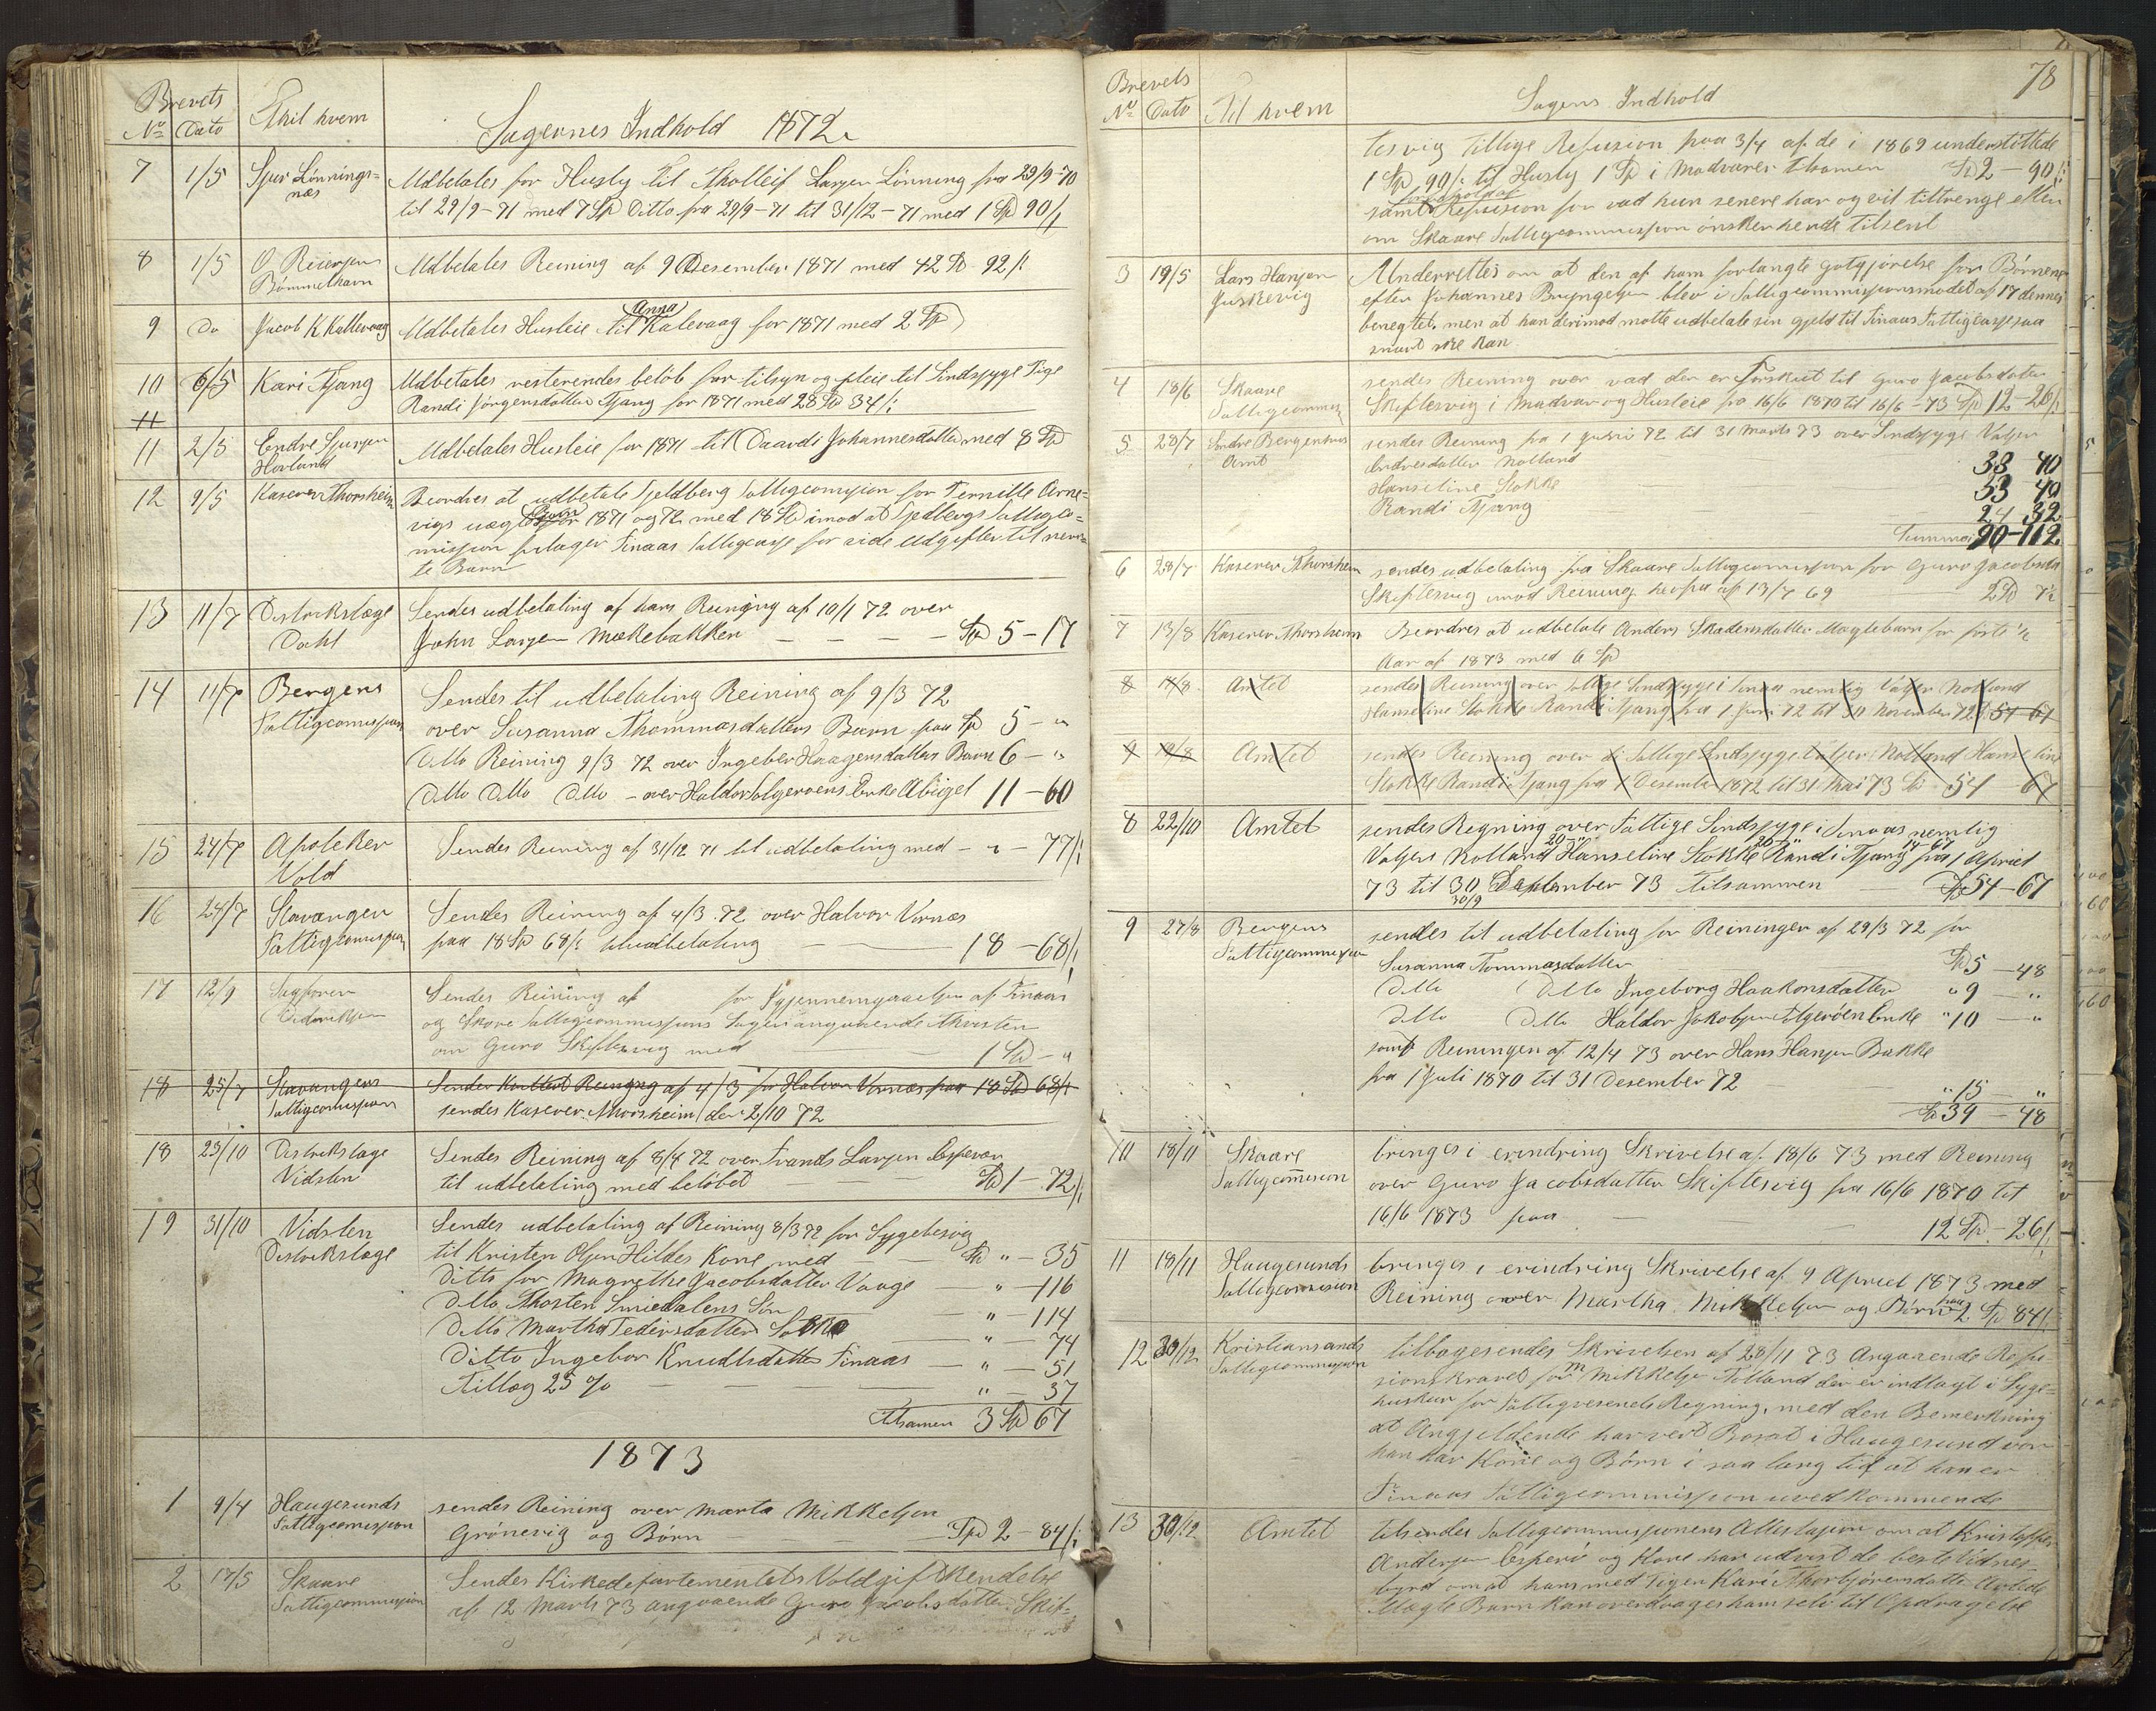 Brevets
No Dato Thil hvem Sagernes Indhold 1872
7 1/5 Sjur Lønnings= Udbetales for Husly til Tholleif Larsen Lønning fra 29/9-70
næs til 29/9-71 med 7 Spd Ditto fra 29/9-71 til 31/12-71 med 1 Spd 90 /:
8 1/5 O Reiersen Udbetales Reining af 9 Desember 1871 med 42 Spd 92 /:
Bømmelhavn
Anna
9 Do Jacob K Kallevaag Udbetales Husleie til Kalevaag for 1871 med 2 Spd
10 6/5 Kari Tjang Udbetales resterendes beløb for tilsyn og pleie til Sindsyge Pige
Randi Jørgensdatter Tjang for 1871 med 28 Spd 34 /:
11
11 2/5 Endre Sjursen Udbetales Husleie for 1871 til Daardi Johannesdatter med 8 Spd
Hovland
12 9/5 Kaserer Thorsheim Beordres at udbetale Tjeldberg Fattigcomision for Pernille Arne=
vigs uægte Barn for 1871 og 72 med 18 Spd imod at Fattigco=
mission Finaas Fattigcasse for vide Udgifter til nevn=
te Barn
13 11/7 Distrikslæge Sendes udbetaling af hans Reining af 10/1 72 over
Dahl John Larsen Mækebakken — — — Spd 5 – 17
14 11/7 Bergens Sendes til udbetaling Reining af 9/3 72
Fattigcomission over Susanna Thommasdatters Barn paa Spd 5 – "
Ditto Reining 9/3 72 over Ingeber Haagensdatters Barn 6 – "
Ditto Ditto Ditto – over Haldor Enke Abigel 11 – 60
15 24/7 Apoteker Sendes Reining af 31/12 71 til udbetaling med – " – 77 /:
Vold
16 24/7 Stavanger Sendes Reining af 4/3 72 over Halvor Vernæs
Fattigcomission paa 18 Spd 68 /: til udbetaling — 18 – 68 /:
17 12/9 Sagfører Sendes Reining af for Igjennemgaaelsen af Finaas
og Skore Fattigcommissions Sager angaaende
om Guro Skiftesvig med — 1 Spd – "
18 25/7 Stavangers Sendes Kvittert Reining af 4/3 for Halvor Vernæs paa 18 Spd 68 /:
Fattigcomission sendes Kaserer Thorsheim den 2/10 72
18 23/10 Distrikslæge Sendes Reining af 8/4 72 over Trands Larsen Espevær
Vidsten til udbetaling med beløbet — Spd 1 – 72 /:
19 31/10 Vidsten Sendes udbetaling af Reining 8/3 72 for Sygebesøg
Distrikslæge til Kristen Olsen Hildes Kone med — Spd " – 35
Ditto for Magrethe Jacobsdatter Vaage — " – 116
Ditto Thosten Smiedalens Søn — " – 114
Ditto Martha Pedersdatter — " – 74
Ditto Ingebor Knudtsdatter Finaas — " – 51
Tillæg 25 % — " – 37
3 Spd 67
1873
1 9/4 Haugesunds sendes Reining over Marta Mikkelsen
Fattigcomission Grønevig og Børn — Spd 2 – 84 /:
2 17/5 Skaare Sendes Kirkedepartementets Voldgift Kendelse
Fattigcommission af 12 Marts 73 angaaende Guro Jacobsdatter Skif=
78
Brevets
No Dato Til hvem Sagens Indhold
tesvig tillige Refusion paa 3/4 af de i 1869 understøttede
1 Spd 90 /: til Husly 1 Spd i Madvarer Spd 2 – 90 /:
samt Refusion for vad hun senere har og vil tiltrenge
om Skaare Fattigcommission ønsker hende tilsent
3 19/5 Lars Hansen Underrettes om at den af ham forlangte gotgjørelse for Børnene
efter Johannes Bryngelsen blev i Fattigcommissionsmødet af 17 dennes
benegtet, men at han derimod motte udbetale sin gjeld til Finaas Fattigcasse saa
snart ske kan
4 18/6 Skaare sendes Reining over vad der er Forskut til Guro Jacobsdatter
Fattigcommi Skiftesvig i Madvar og Husleie fra 16/6 1870 til 16/6 – 73 Spd 12 – 26 /:
5 28/7 Søndre Bergenhus sendes Reining fra 1 Juni 72 til 31 Marts 73 over Sindsyge Valjer
Amt Endresdatter Notland 33 40
Hanseline Stokke — 33 40
Randi Tjang — 24 32
Summa 90 – 112
6 28/7 Kaserer Thorsheim sendes udbetaling fra Skaare Fattigcomission for Guro Jacobsdtr
Skiftesvig imod Reining herfra af 13/7 69 2 Spd 72
7 13/8 Kaserer Thorsheim Beordres at udbetale Anders Skadensdatter Uægtebarn for første 1/2
Aar af 1873 med 6 Spd
8 18/8 Amtet sendes Reining over Fattige Sindsyge i Finaas nemlig Valjer Notland
Hanseline Stokke Randi Tjang fra 1 Juni 72 til 30 November 72 54 67
9 19/8 Amtet sendes Reining over di Fattige Sindsyge Valjer Notland Hanseline
Stokke Randi Tjang fra 1 Desember 1872 til 31 Mai 73 Spd 54 – 67
8 22/10 Amtet sendes Regning over Fattige Sindsyge i Finaas nemlig
20 – " 20 – " 14 – 67
Valjer Notland Hanseline Stokke Randi Tjang fra 1 Apriel
73 til 30 September 73 Tilsammen — Spd 54 – 67
30/9
9 27/8 Bergens sendes til udbetaling for Reininger af 29/3 72 for
Fattigcommission Susanna Tommasdatter — Spd 5 – 48
Ditto Ditto Ingeborg Haakonsdatter " 9 – "
Ditto Ditto Haldor Jakobsen Enke " 10 – "
samt Reiningen af 12/4 73 over Hans Hansen Bakke
fra 1 Juli 1870 til 31 Desember 72
" 15 – "
Spd 39 – 48
10 18/11 Skaare bringes i erindring Skrivelse af 18/6 73 med Reining
Fattigcomision over Guro Jacobsdatter Skiftesvig fra 16/6 1870 til
16/6 1873 paa — 12 Spd – 26 /:
11 18/11 Haugesunds bringes i erindring Skrivelse af 9 Apriel 1873 med
Fattigcomision Reining over Martha Mikkelsen og Børn paa 2 Spd 84 /:
12 30/12 Kristiansands tilbagesendes Skrivelsen af 28/11 73 Angaaende Refu
Fattigcommission sionskravet for M Mikkelsen Følland der er indlagt i Syge=
huskur for Fattigvesenets Regning, med den Bemerkning
at Angjeldende har vert Bosat i Haugesund vor
han har Kone og Børn i saa lang tid at han er
Finaas Fattigcommission uvedkommende
13 30/12 Amtet tilsendes Fattigcommissionens Attestasjon om at Kristoffer
Andersen Esperø og Kone har udvist de beste Vidnes
byrd om at hans med Pigen Kari Thorbjørensdatter Avlede
Uægte Barn kan overdrages ham selv til Opdragelse